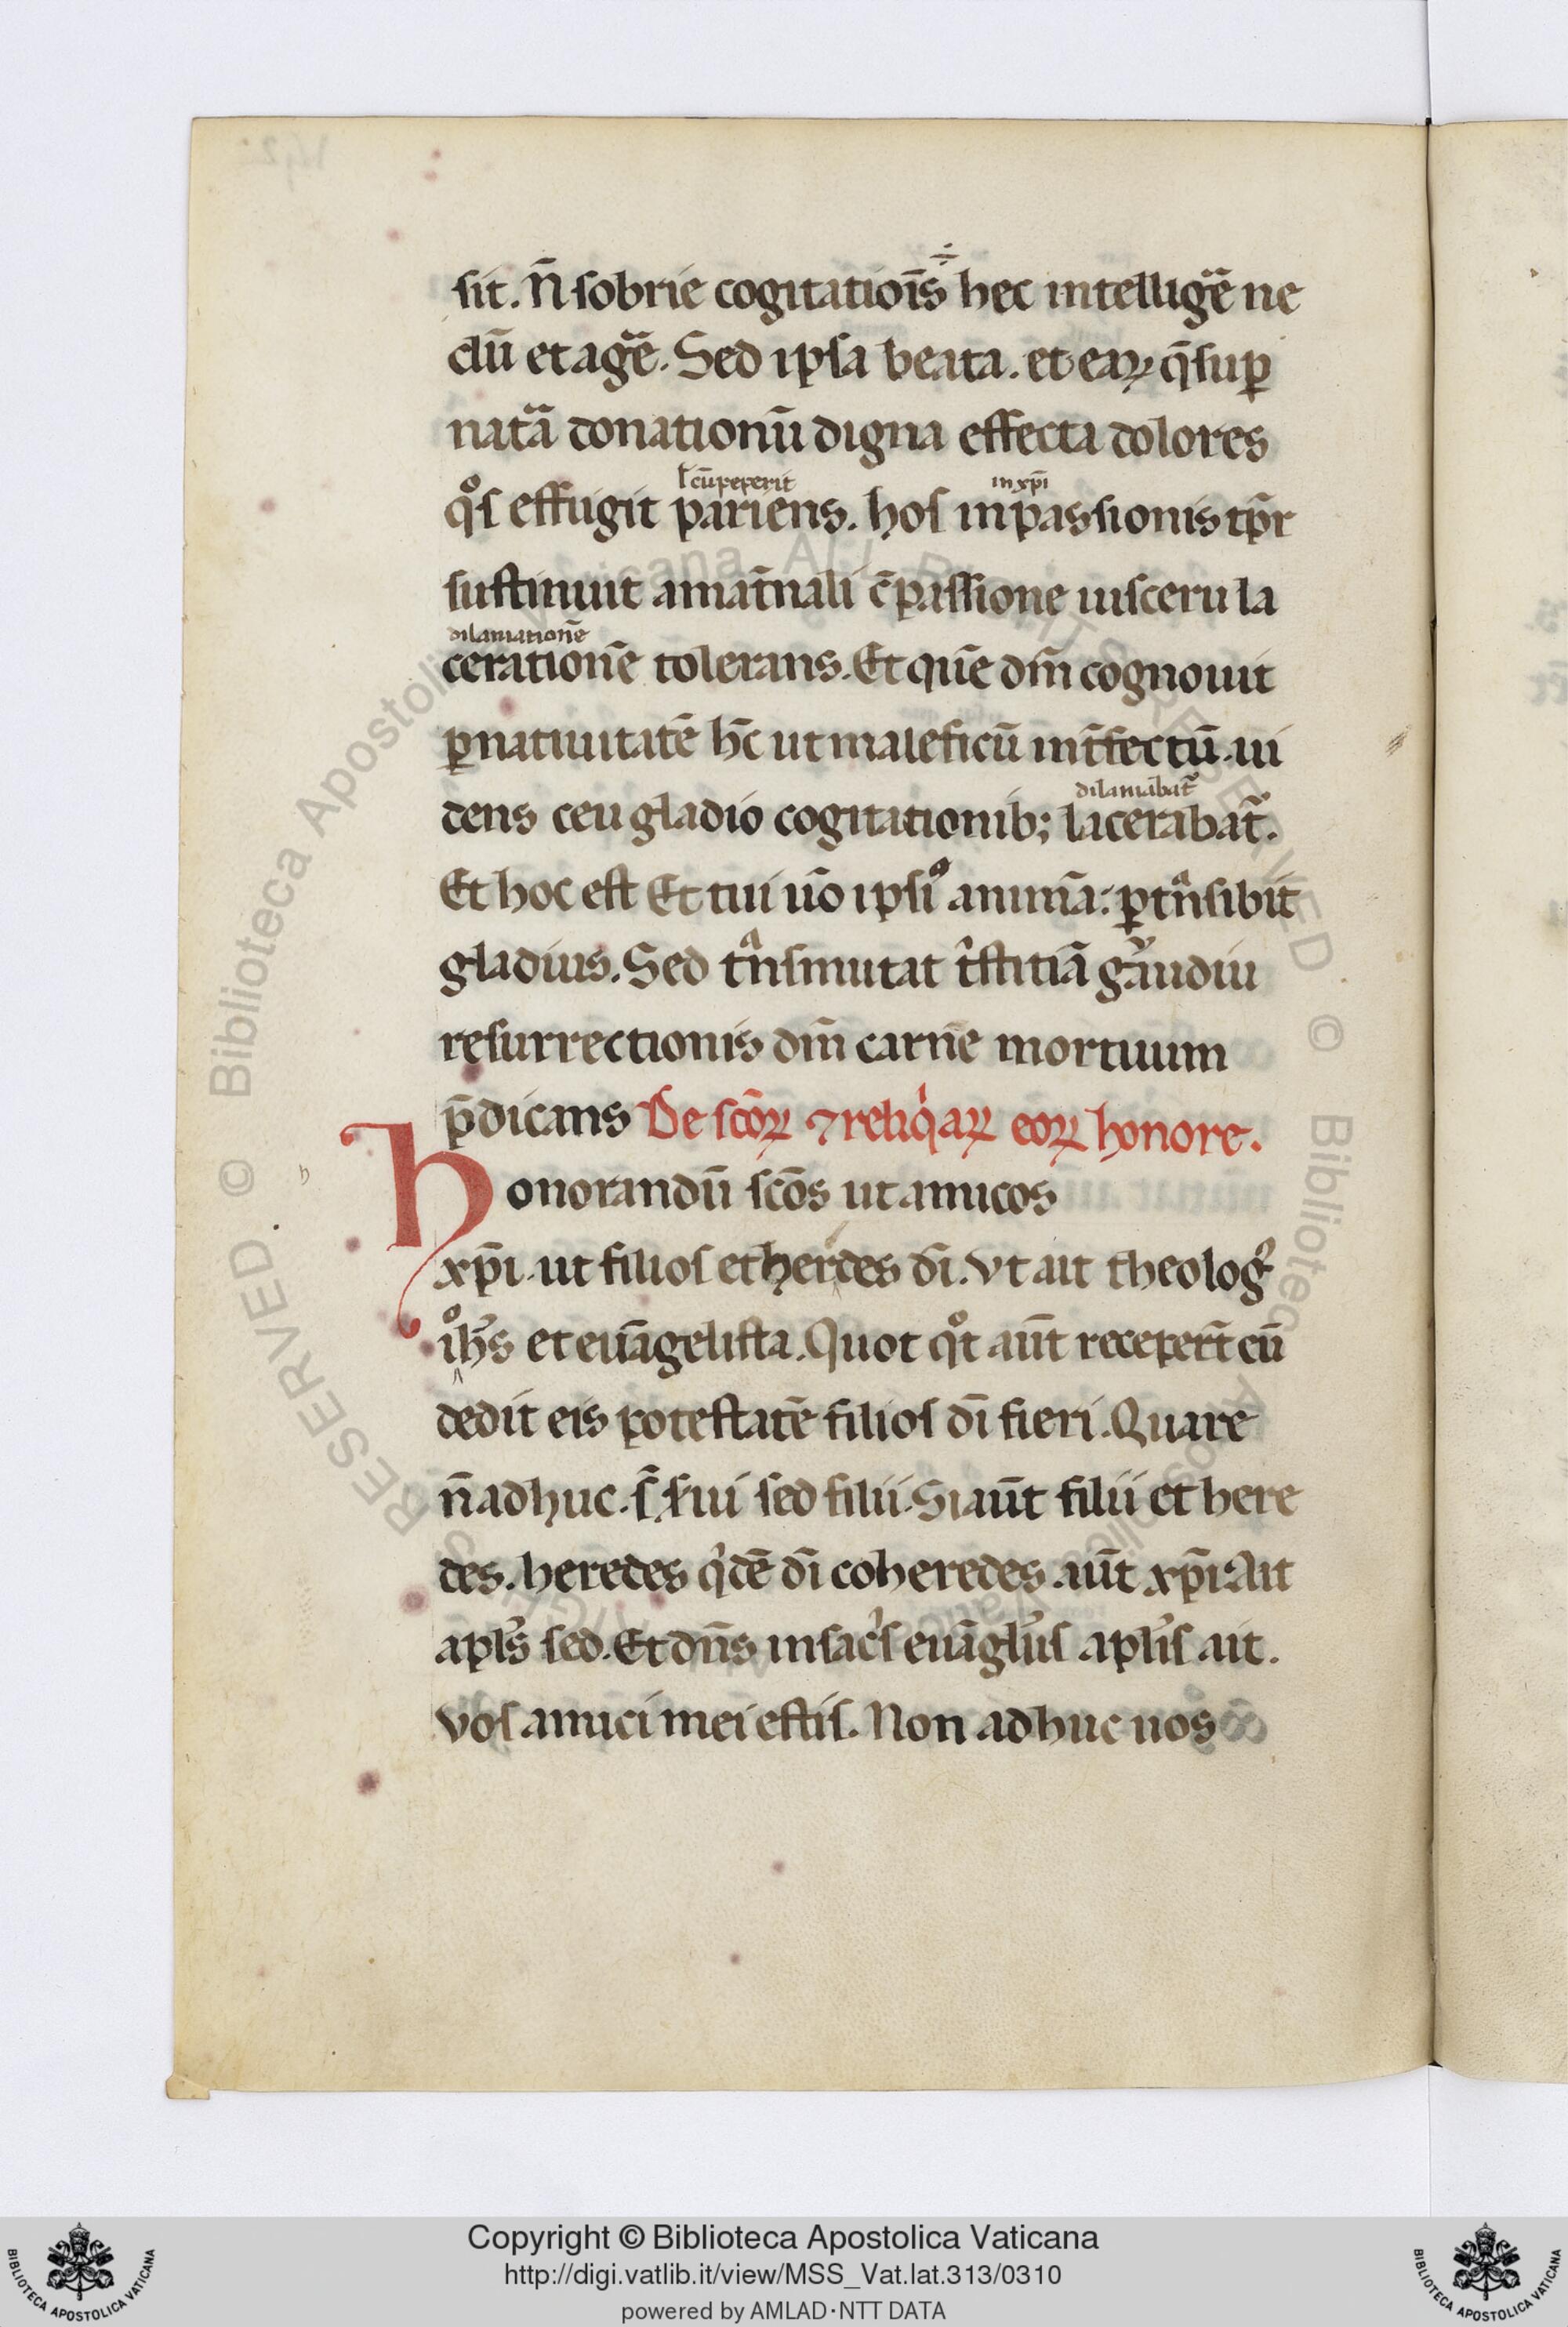 sit. n̄ sobrie cogitatioīs ÷ hec intelligē ne
dū et agē. Sed ipsa beata. et eaꝝ q̄ suꝑ
natā donationū digna effecta dolores
ł cū peperit in xp̄i
qͦs effugit pariens. hos in passionis tp̄r
sustinuit a mat̄nali c̄passione uisceru la
dilaniationē
cerationē tolerans. Et quē dm̄ cognouit
ꝑ natiuitatē hc̄ ut maleficū int̄fectū. ui
dilaniabat᷑
dens ceu gladio cogitationib; lacerabat᷑.
Et hoc est Et tui uō ipsiꝰ animā: ꝑtnͣsibit
gladius. Sed tnͣsmutat tͥstitiā gaudiu
resurrectionis dm̄ carne mortuum
p̄dicans De scōꝝ ⁊ reliqͥaꝝ eoꝝ honore.
Honorandū scōs ut amicos
xp̄i. ut filios et heredes dī. Vt ait theologꝰ
ioh̄s et euāgelista. Quot qͦt aūt receper̄t eū
dedit eis potestatē filios dī fieri. Quare
n̄ adhuc. s̄ s̄ui sed filii. Si aūt filii et here
des. heredes qͥdē dī coheredes. aūt xp̄i. Ait
apl̄s sed. Et dn̄s in sacͥs euāgl̄iis apl̄is ait.
Vos amici mei estis. Non adhuc uos
Copyright © Biblioteca Apostolica Vaticana
http://digi.vatlib.it/view/MSS_Vat.lat.313/0310
powered by AMLAD·NTT DATA
BIBLIOTECA APOSTOLICA VATICANA
BIBLIOTECA APOSTOLICA VATICANA